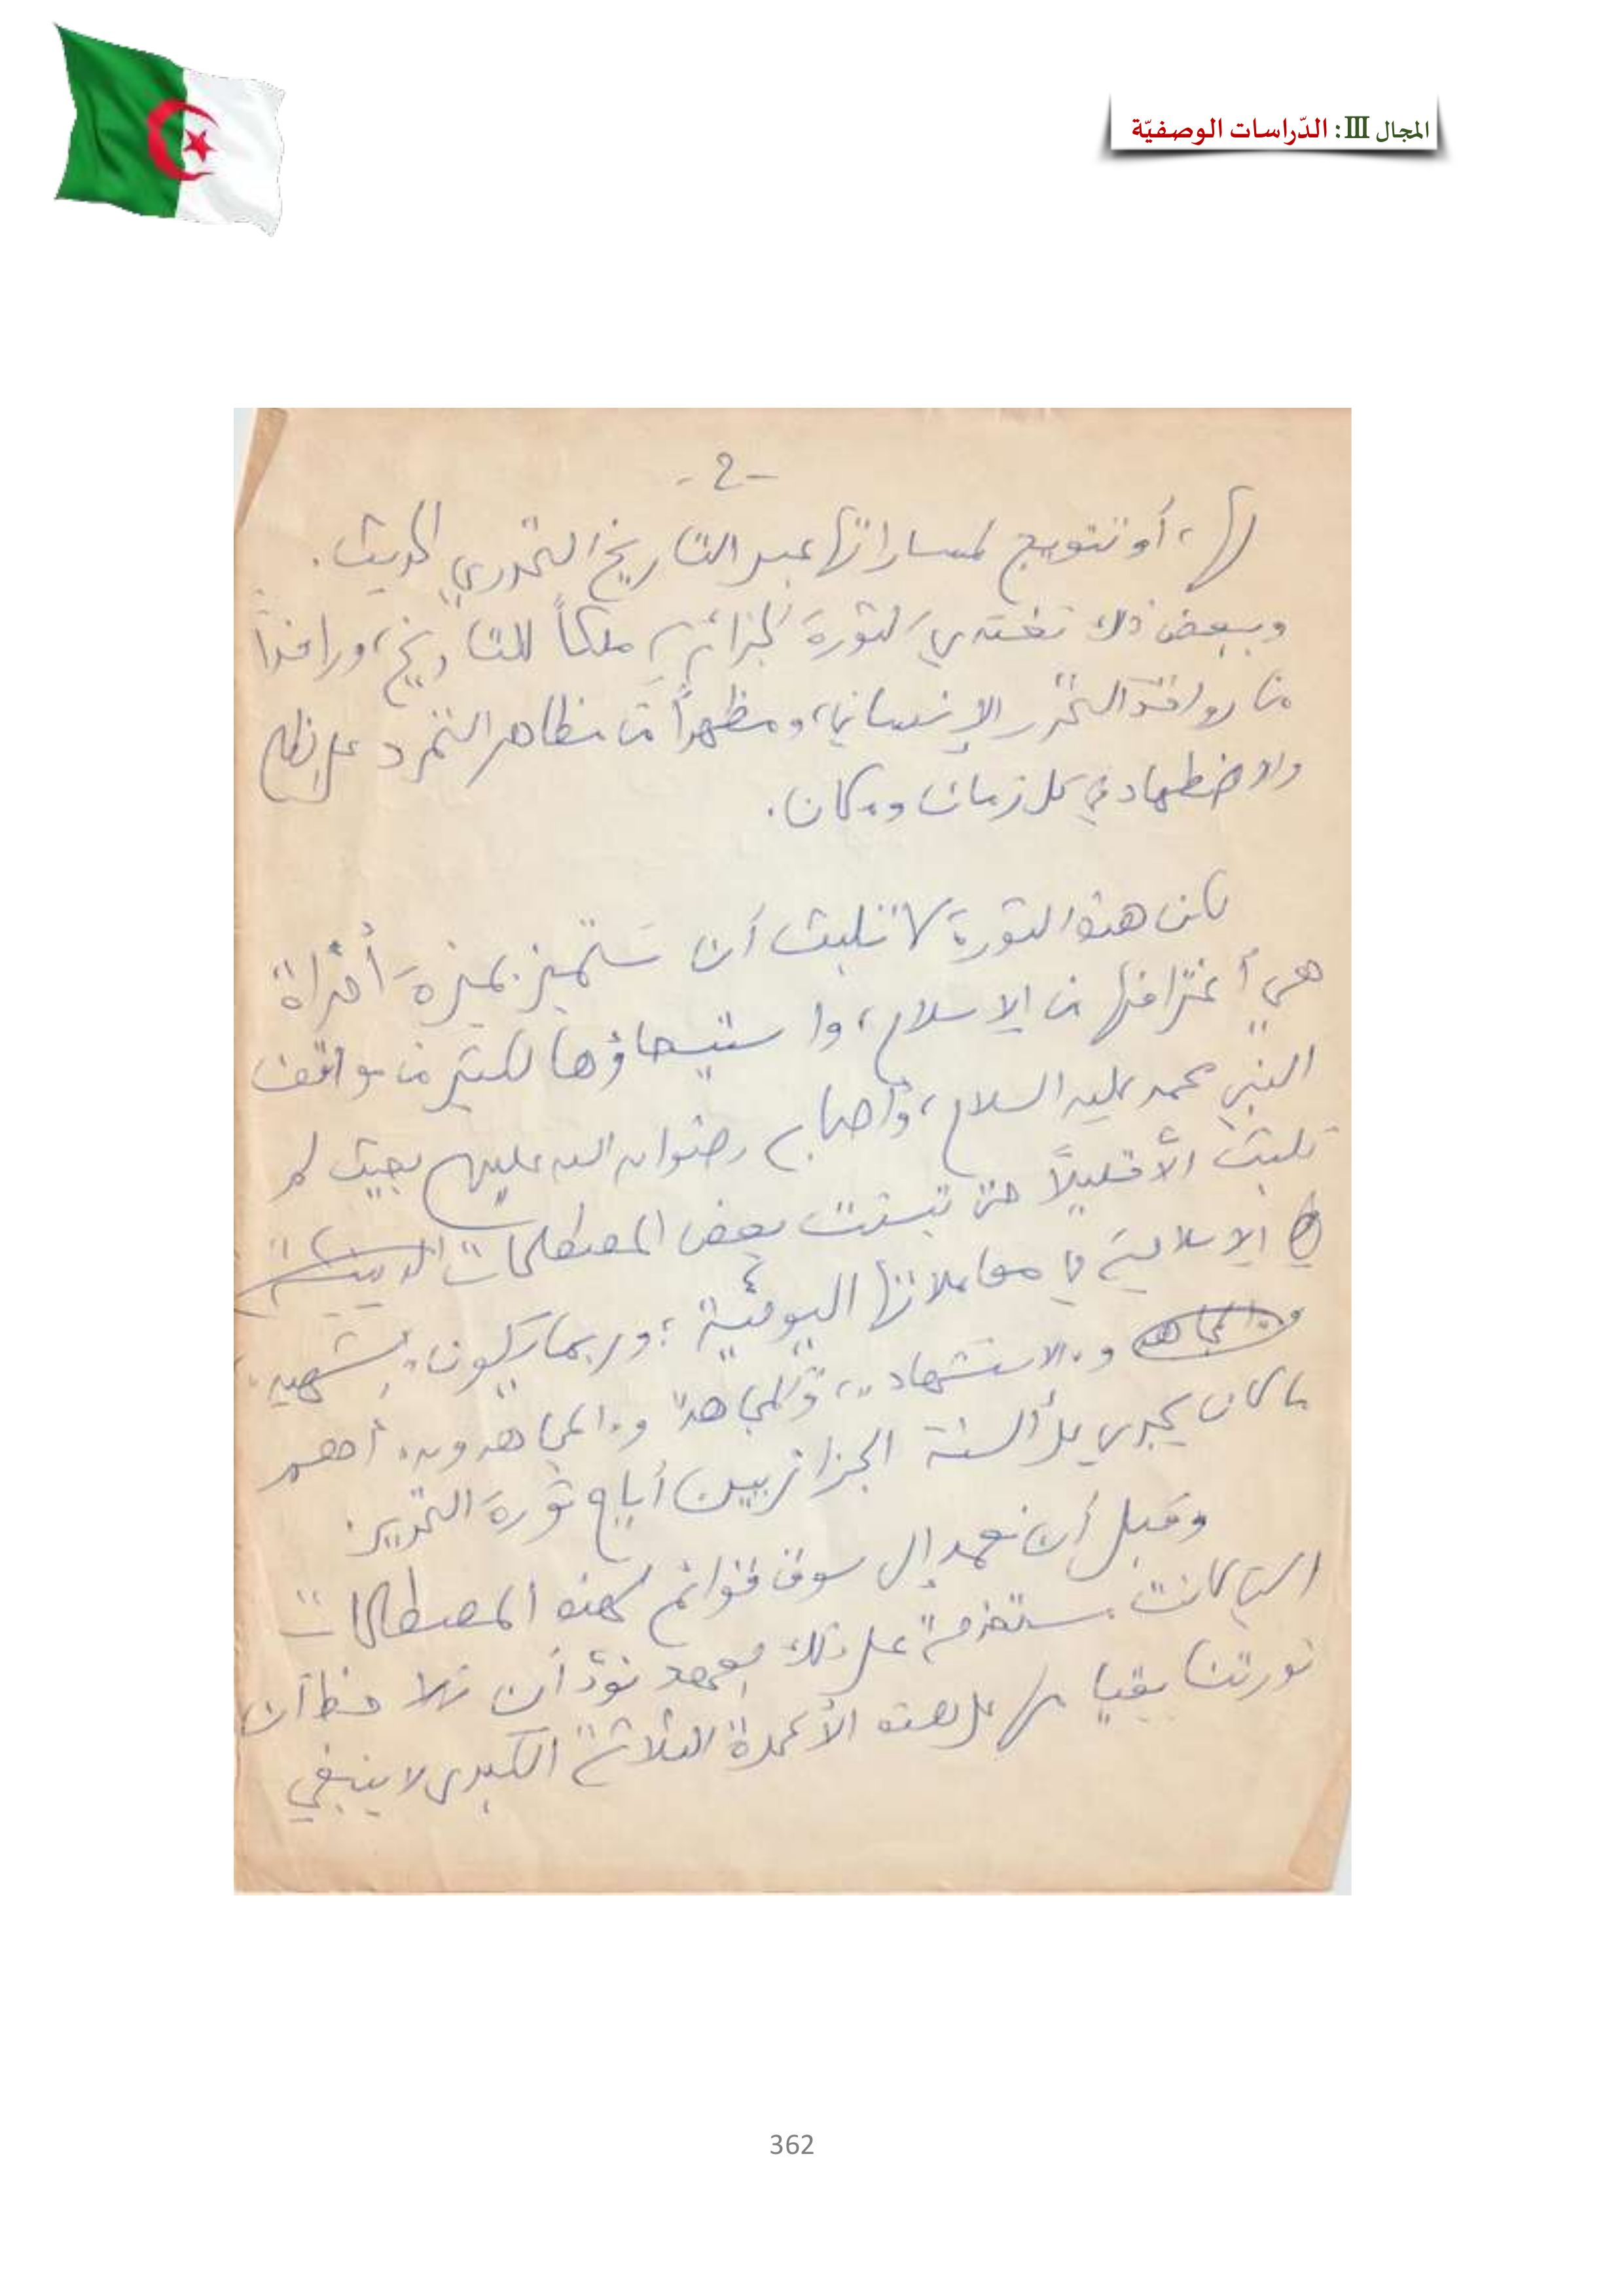 المجال III: الدّراسات الوصفيّة
-2-
لها، أو تتويج لمساراتها عبر التاريخ التحرري الحديث.
وببعض ذلك تغتدي الثورة الجزائرية ملكاً للتاريخ، ورافداً
من روافد التحرر الإنساني، ومظهراً من مظاهر التمرد على الظلم
والاضطهاد في كل زمان ومكان.
لكن هذه الثورة لا تلبث أن تتميز بميزة أخراة
هي اغترافها من الإسلام، واستيحاؤها لكثير من مواقف
النبي محمد عليه السلام، وأصحابه رضوان الله عليهم بحيث لم
تلبث إلاّ قليلاً حتى تبنت بعض المصطلحات الدينية
الإسلامية في معاملاتها اليومية؛ وربما يكون "الشهيد"
والمجاهد و"الاستشهاد"، و"المجاهد" و"المجاهدون" أهم
ما كان يجري على ألسنة الجزائريين أيام ثورة التحرير.
وقبل أن نعمد إلى سوق قوائم لهذه المصطلحات
التي كانت مستخدمة على ذلك العهد نودّ أن نلاحظ أن
ثورتنا بقيامها على هذه الأعمدة الثلاثة الكبرى لا ينبغي
362